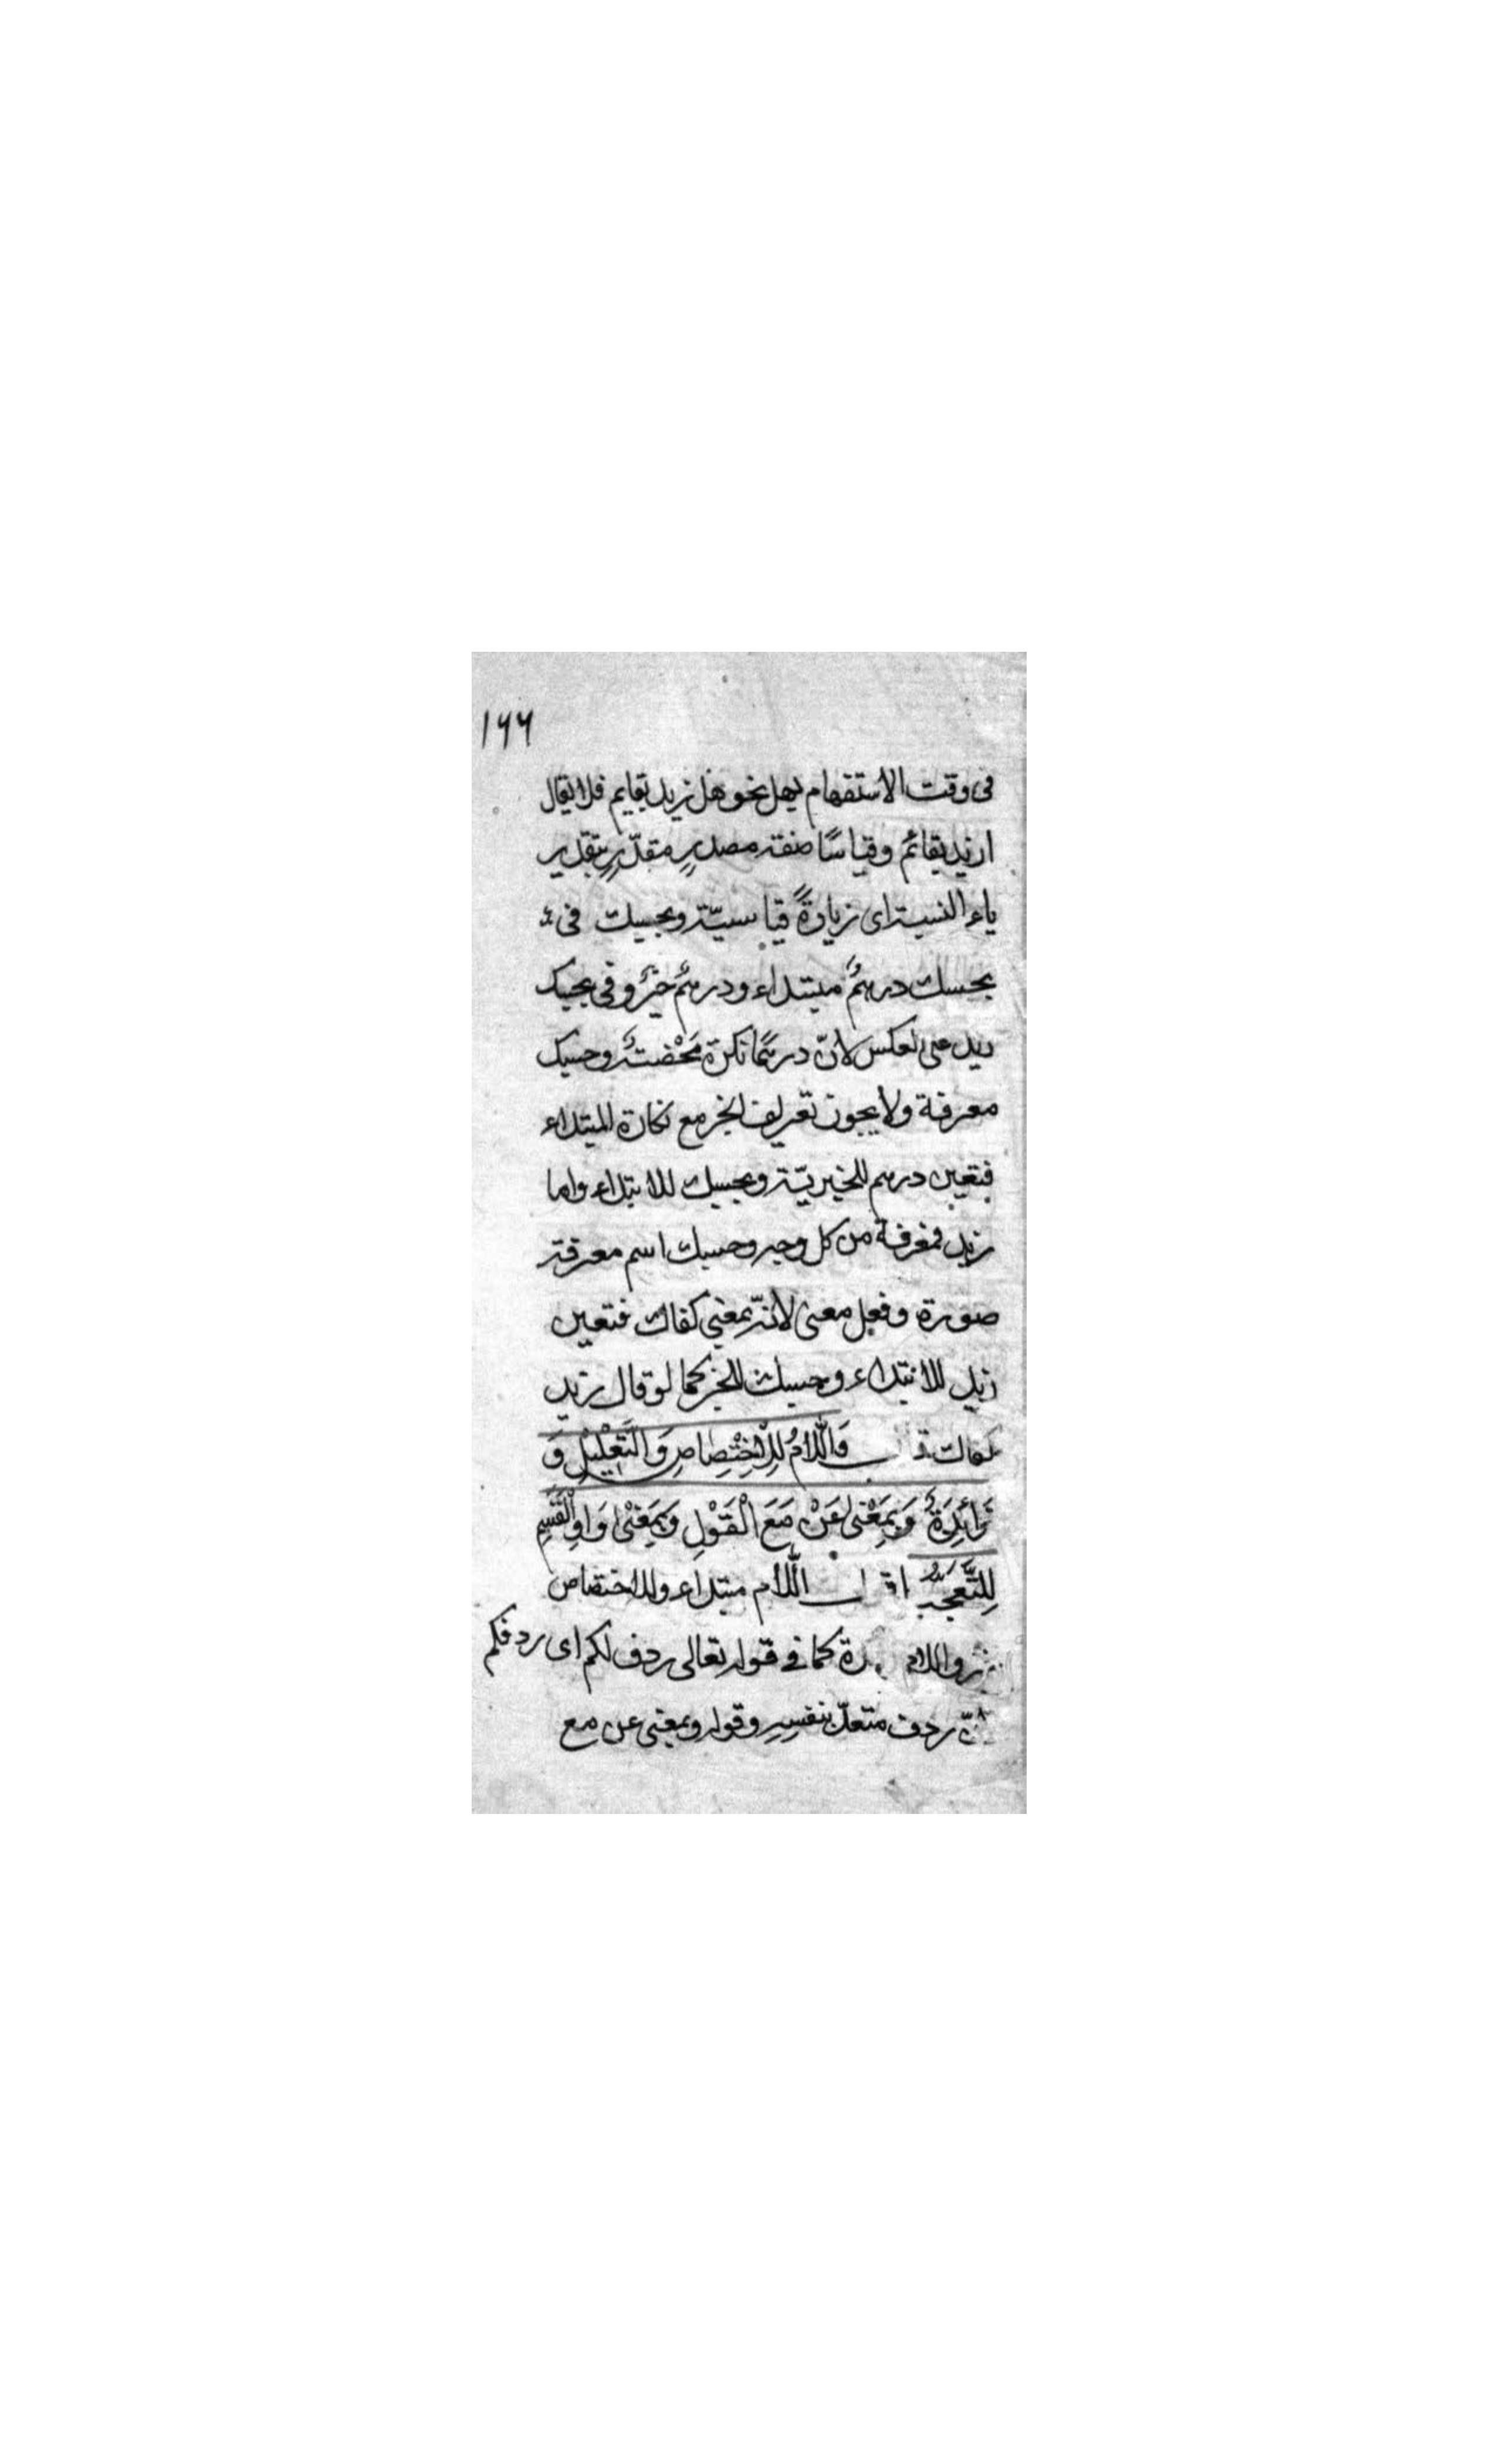 ١٦٦
فى وقت الاستفهام بهل نحو هل زيد بقايم فلا يقال
ازيد بقائم وقياسًا صفته مصدرٍ مقدّرٍ بتقدير
ياء النسبة اى زيادةً قياسيّة وبحسبك فى
بحسبك درهمٌ مبتداء ودرهمٌ خبرٌ وفى بحسبك
زيد على العكس لانّ درهمًا نكرة مَحْضَةٌ وحسبك
معرفة ولا يجوز تعريف الخبر مع نكارة المبتداء
فتعين درهم للخبريّة وبحسبك للابتداء واما
زيد فمعرفة من كل وجه وحسبك اسم معرفة
صورة وفعل معنى لانّه بمعنى كفاك فتعين
زيد للابتداء وحسبك للخبر كما لو قال زيد
كفاك وَاللَّامُ لِلْاِخْتِصَاصِ وَالتَّعْلِيْلِ وَ
زَائِدَةٌ وَبِمَعْنٰى عَنْ مَعَ الْقَوْلِ وَبِمَعْنٰى وَاوِ الْقَسَمِ
لِلتَّعَجُّبِ اللّام مبتداء وللاختصاص
واللام كما فى قوله تعالى ردف لكم اى ردفكم
ردف متعدّ بنفسِهِ وقوله وبمعنى عن مع